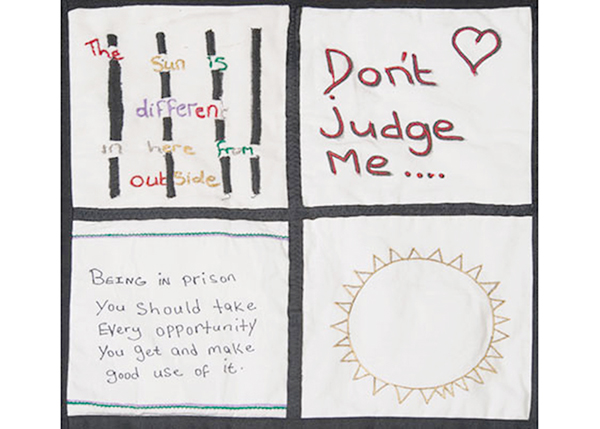 The
Sun is
different
in here from
outside
Don't
Judge
Me....
BEING in prison
You Should take
Every opportunity
You get and make
good use of it.